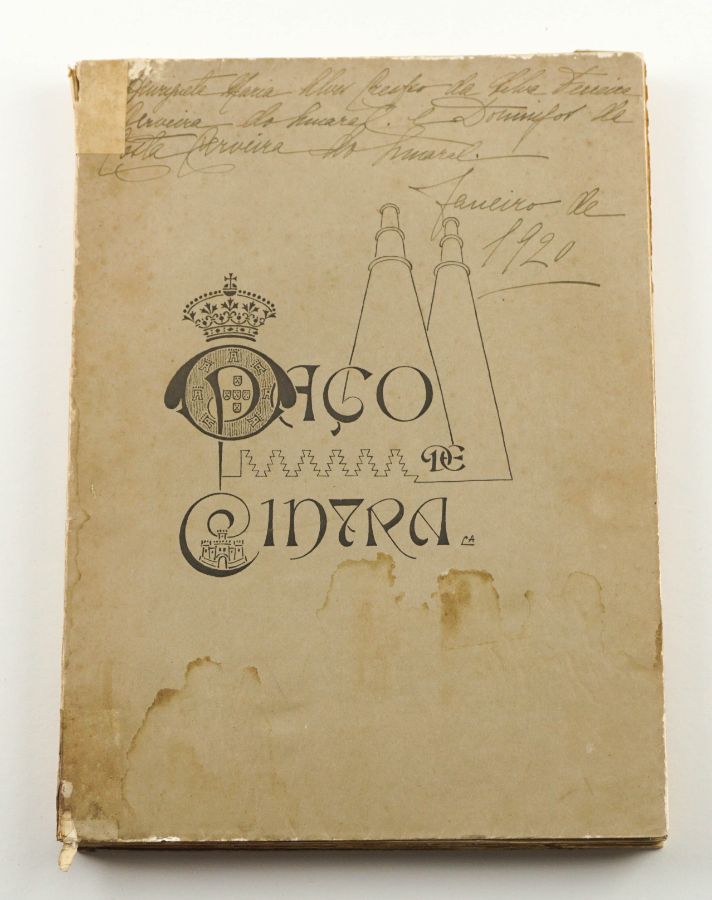 Maria Alves Crespo da Silva Ferreira
Cerveira do Amaral. e Domingos da
Costa Cerveira do Amaral.
Janeiro de
1920
PAÇO
DE
CINTRA